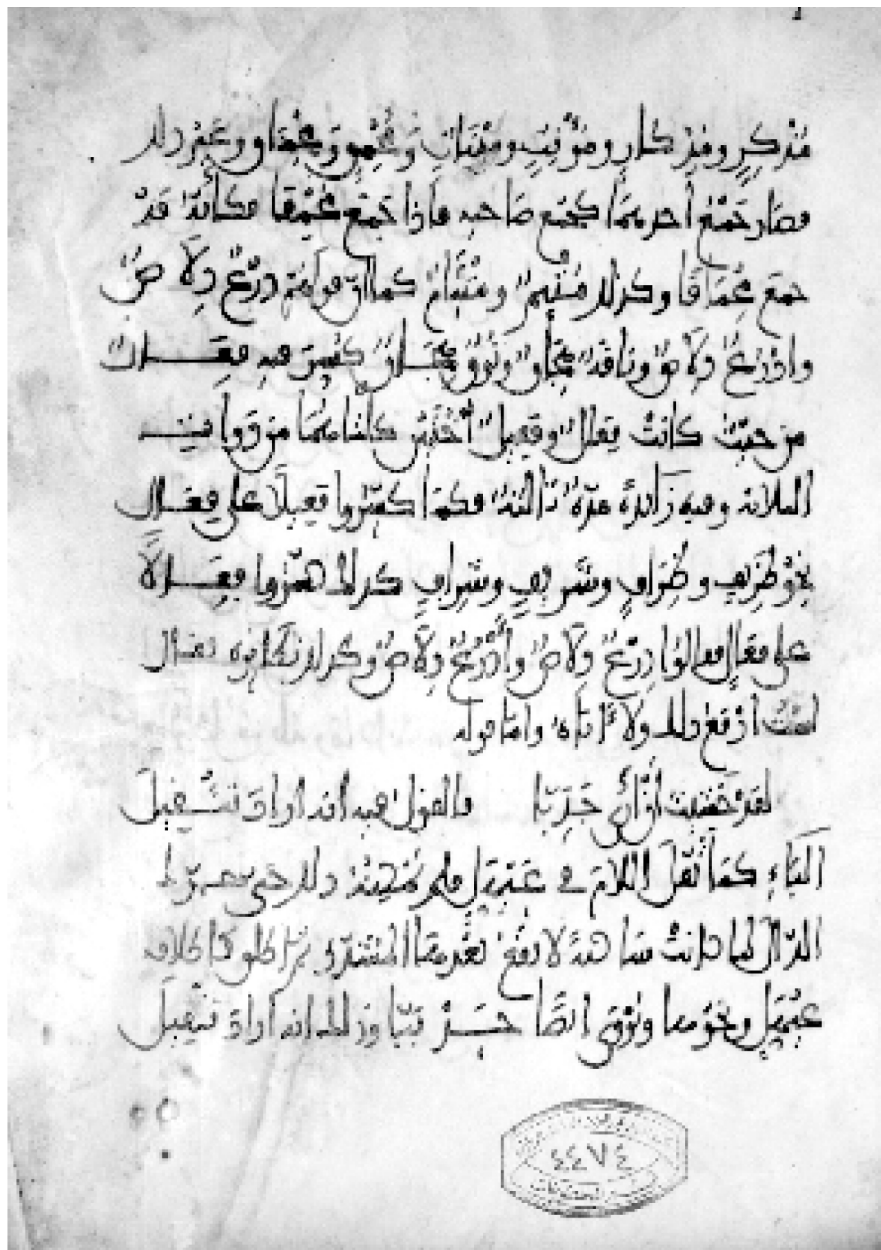 مُذْكِرٍ ومِذْكارٍ ومُؤْنِثٍ ومِئْنَاثٍ ومُحْمِقٍ ومِحْمَاقٍ وغَيْرِ ذلك
فصَارَ جَمْعُ أحدِهِمَا كجمع صَاحبِه فإذا جَمَعَ مُحْمِقًا فكأنَّهُ قَدْ
جمع مِحْمَاقًا وكذلك مُتْئِمٌ ومِتْآمٌ كما أنّ قولهم دِرْعٌ دِلَاصٌ
وأدْرُعٌ دِلَاصٌ وناقةٌ هِجَانٌ ونُوقٌ هِجَانٌ كُسِّرَ فيه فِعَالٌ
من حيثُ كانتْ فِعَالٌ وفَعِيلٌ أُخْتَيْنِ كلتاهُمَا من ذَواتِ
الثلاثة وفيه زَائدةٌ مَدّةٌ ثالثةٌ فكمَا كسَّروا فَعِيلًا على فِعَالٍ
نحْوَ ظَرِيفٍ وظِرَافٍ وشَرِيفٍ وشِرَافٍ كذلك كسّروا فِعَالًا
على فِعَالٍ فقالوا دِرْعٌ دِلَاصٌ وأَدْرُعٌ دِلَاصٌ وكذلك نَظَائِرُه فقال
لسْتُ أَدْفَعُ ذلك ولا آبَاهُ وأمّا قوله
لقَدْ خَشِيتُ أَنْ أَرَى جَدَبَّا فالقولُ فيه أنه أرادَ تثْقِيلَ
البَاءِ كمَا ثَقّلَ اللامَ في عَيْهَلِّ فلم يُمْكِنْهُ ذلك حتى حرّك
الدّالَ لمّا كانتْ سَاكنةً لا يَقَعُ بعْدَها المُشَدَّدُ ثمّ أطلق كإطلاقه
عَيْهَلِّ ونحْوَهَا ويُرْوَى أيضًا جَدْبَبَّا وذلك أنه أرادَ تثقِيلَ
٤٤٧٤